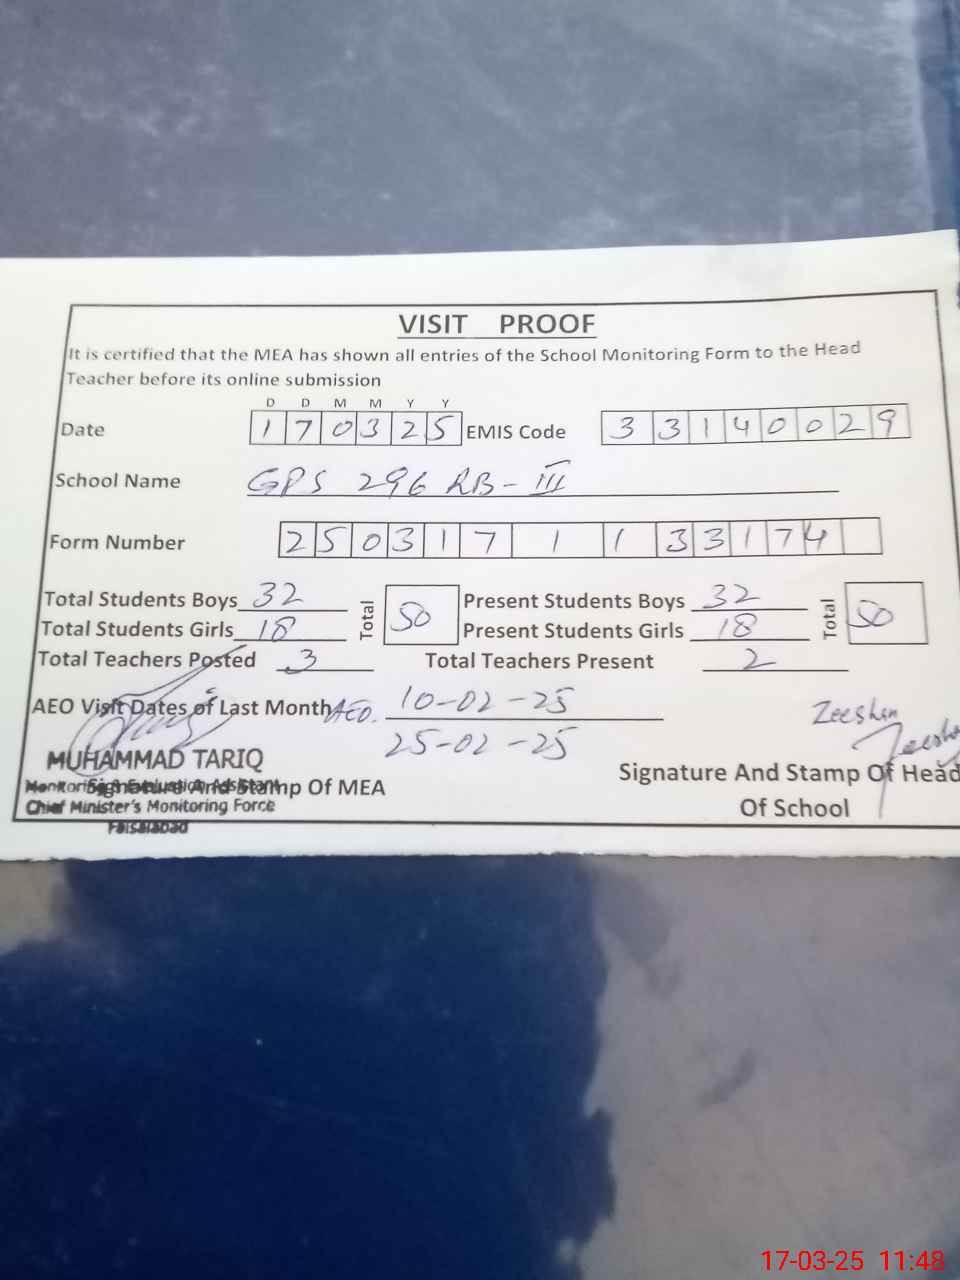 VISIT PROOF
It is certified that the MEA has shown all entries of the School Monitoring Form to the Head
Teacher before its online submission
D D M M Y Y
Date 1 7 0 3 2 5 EMIS Code 3 3 1 4 0 0 2 9
School Name GPS 296 RB-III
Form Number 2 5 0 3 1 7 1 1 3 3 1 7 4
Total Students Boys 32 Total 50 Present Students Boys 32 Total 50
Total Students Girls 18 Present Students Girls 18
Total Teachers Posted 3 Total Teachers Present 2
AEO Visit Dates of Last Month AEO. 10-02-25
25-02-25
Zeeshan
Zeeshan
MUHAMMAD TARIQ
Signature And Stamp Of MEA
Monitoring & Evaluation Assistant
Chief Minister's Monitoring Force
Faisalabad
Signature And Stamp Of Head
Of School
17-03-25 11:48